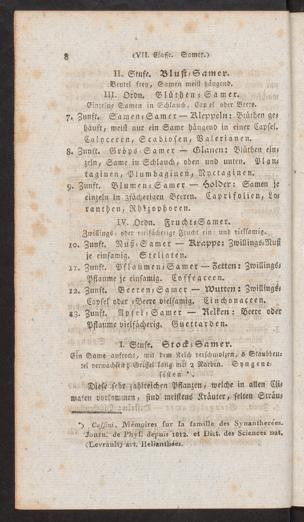 8 (VII. Classe. Samer.)
II. Stufe. Blust-Samer.
Beutel frey, Samen meist hängend.
III. Ordn. Blüthen-Samer.
Einzelne Samen in Schlauch, Capsel oder Beere.
7. Zunft. Samen-Samer — Kleppeln: Blüthen ge-
häuft, meist nur ein Same hängend in einer Capsel.
Calycereen, Scabiosen, Valerianen.
8. Zunft. Gröps-Samer — Glanen: Blüthen ein-
zeln, Same in Schlauch, oben und unten. Plan-
taginen, Plumbaginen, Nyctaginen.
9. Zunft. Blumen-Samer — Holder: Samen je
einzeln in 3fächerigen Beeren. Caprifolien, Lo-
ranthen, Rhizophoren.
IV. Ordn. Frucht-Samer.
Zwillings- oder vielfächerige Frucht ein- und vielsamig.
10. Zunft. Nuß-Samer — Krappe: Zwillings-Nuß
je einsamig. Stellaten.
11. Zunft. Pflaumen-Samer — Fetten: Zwillings-
Pflaume je einsamig. Coffeaceen.
12. Zunft. Beeren-Samer — Wutten: Zwillings-
Capsel oder Beere vielsamig. Cinchonaceen.
13. Zunft. Apfel-Samer — Relken: Beere oder
Pflaume vielfächerig. Guettarden.
I. Stufe. Stock-Samer.
Ein Same aufrecht, mit dem Kelch verschmolzen, 5 Staubbeu-
tel verwachsen, Griffel lang mit 2 Narben. Syngene-
sisten *.
Diese sehr zahlreichen Pflanzen, welche in allen Cli-
maten vorkommen, sind meistens Kräuter, selten Sträu-
*) Cassini, Mémoires sur la famille des Synantherées.
Journ. de Phys. depuis 1812. et Dict. des Sciences nat.
(Levrault) art. Helianthées.